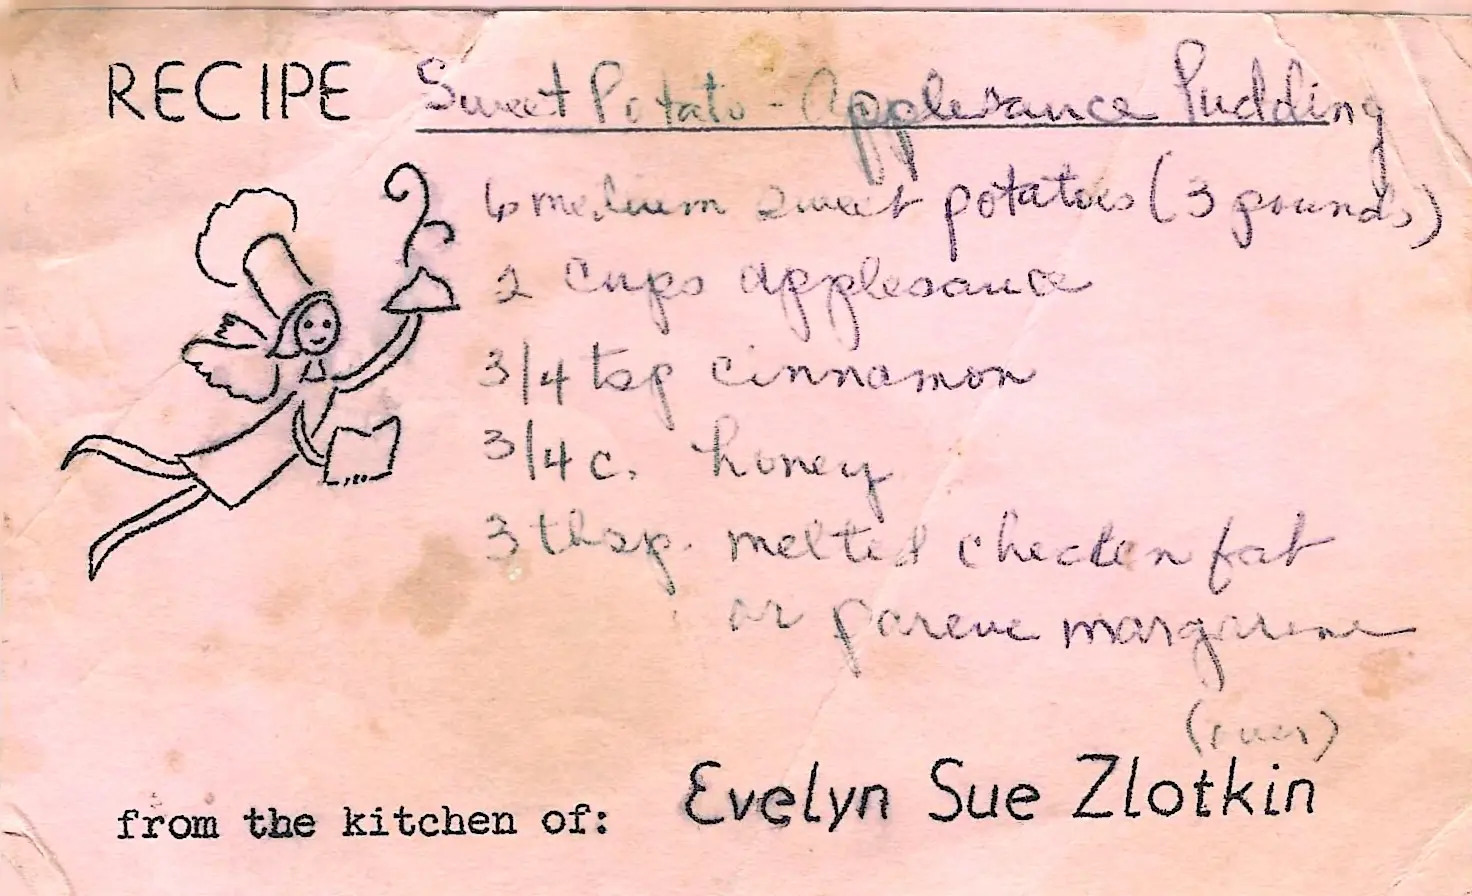 RECIPE Sweet Potato - Applesauce Pudding
6 medium sweet potatoes (3 pounds)
2 cups applesauce
3/4 tsp cinnamon
3/4 c. honey
3 tbsp. melted chicken fat
or pareve margarine
(over)
from the kitchen of: Evelyn Sue Zlotkin